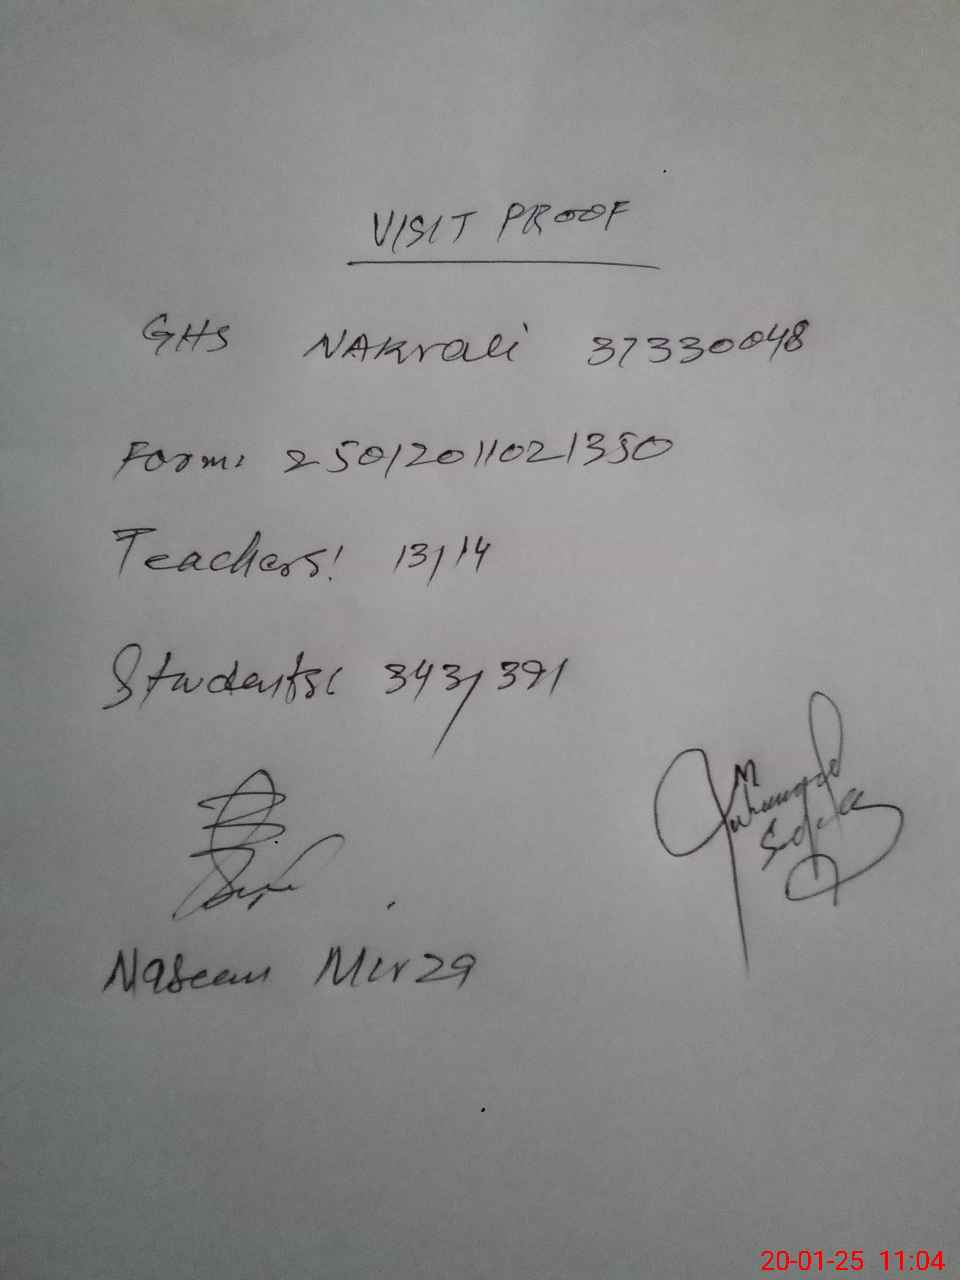 VISIT PROOF
GHS NAKrali 37330048
Form: 25012011021350
Teachers: 13/14
Students: 343/391
Muhammad
Naseem Mirza
20-01-25 11:04